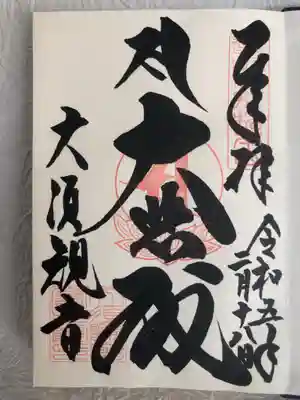 奉拝
令和五年
二月
大悲殿
大須観音